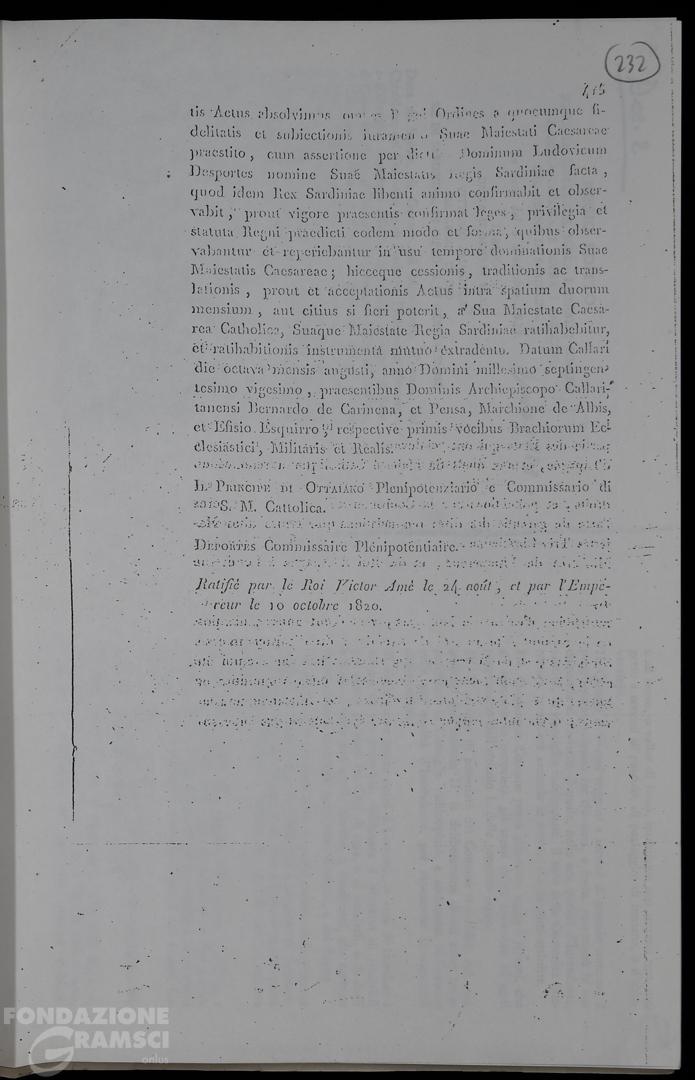 232
415
tis Actus absolvimus Ordines a quocumque fi-
delitatis et subiectionis iuramen Suae Maiestati Caesareae
praestito, cum assertione per Dominum Ludovicum
Desportes nomine Suae Maiestatis Regis Sardiniae facta,
quod idem Rex Sardiniae libenti animo confirmabit et obser-
vabit, prout vigore praesentis confirmat leges, privilegia et
statuta Regni praedicti eodem modo et forma, quibus obser-
vabantur et reperiebantur in usu tempore dominationis Suae
Maiestatis Caesareae; hicceque cessionis, traditionis ac trans-
lationis, prout et acceptationis Actus intra spatium duorum
mensium, aut citius si fieri poterit, a Sua Maiestate Caesa-
rea Catholica, Suaque Maiestate Regia Sardiniae ratihabebitur,
et ratihabitionis instrumenta mutuo extradentu. Datum Callari
die octava mensis augusti, anno Domini millesimo septingen-
tesimo vigesimo, praesentibus Dominis Archiepiscopo Callari-
tanensi Bernardo de Carinena, et Pensa, Marchione de Albis,
et Efisio Esquirro respective primis vocibus Brachiorum Ec-
clesiastici, Militaris et Realis.
Il Principe di Ottaiano Plenipotenziario e Commissario di
S. M. Cattolica.
Deportes Commissaire Plénipotentiaire.
Ratifié par le Roi Victor Amé le 24 août, et par l'Empe-
reur le 10 octobre 1820.
FONDAZIONE
GRAMSCI
onlus